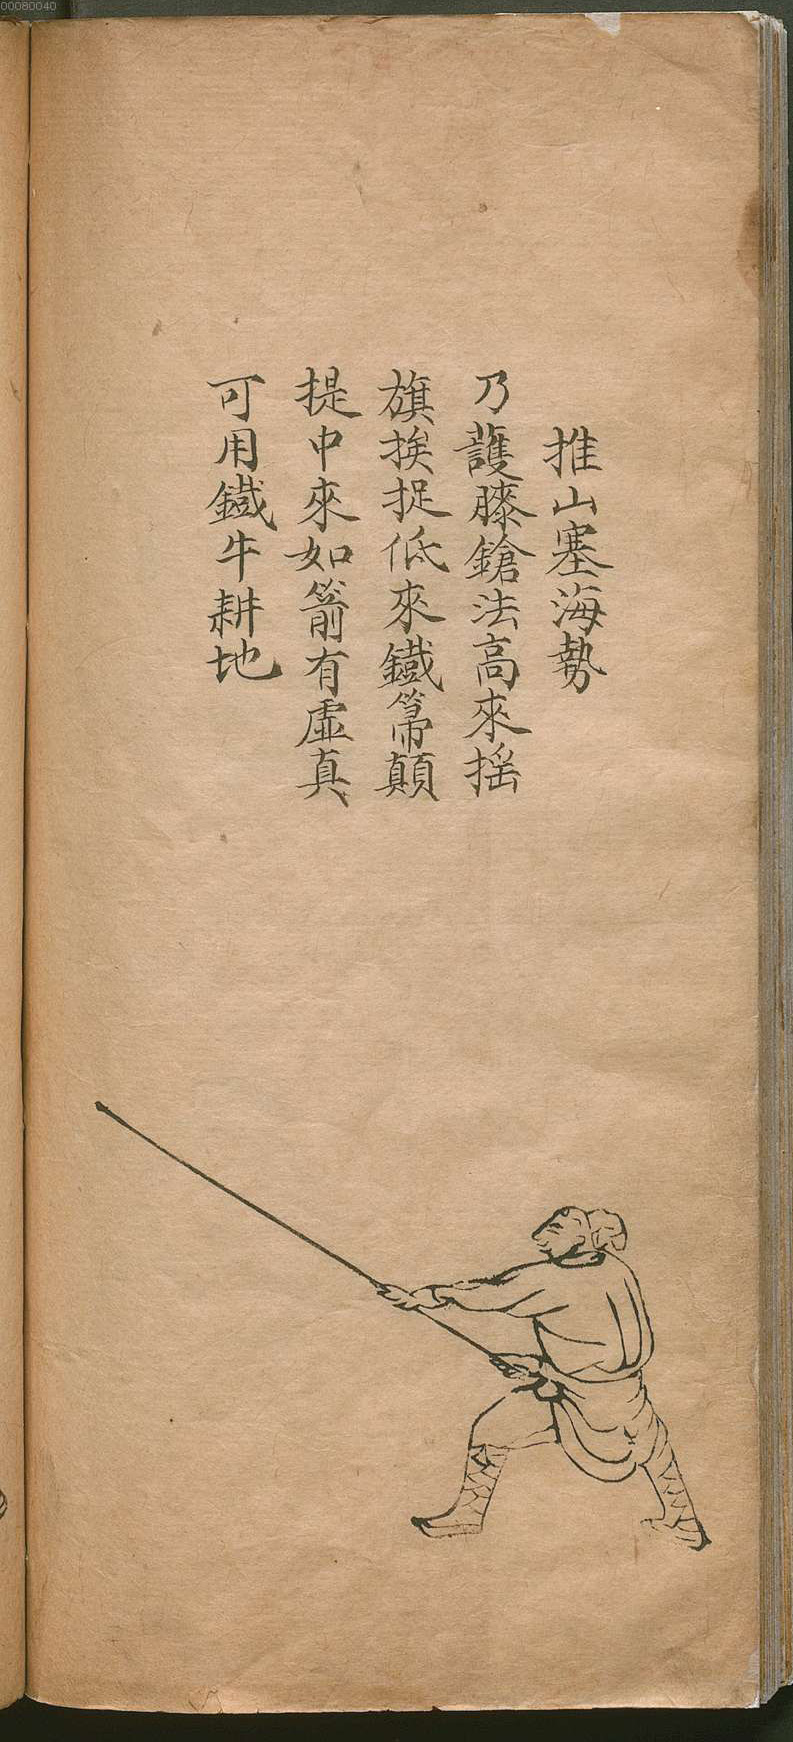 00080040
推山塞海勢
乃護膝鎗法高來摇
旗挨捉低來鐵箒顛
提中來如箭有虛真
可用鐵牛耕地